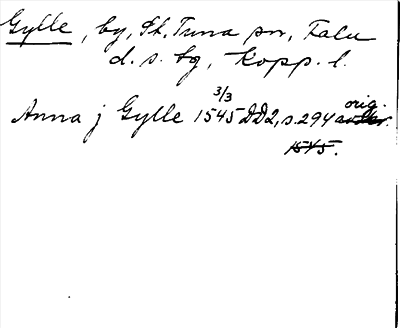 Gylle, by, St. Tuna sn, Falu
d. s. bg, Kopp. l.
3/3 orig.
Anna j Gylle 1545 DD2, s. 294
1545.